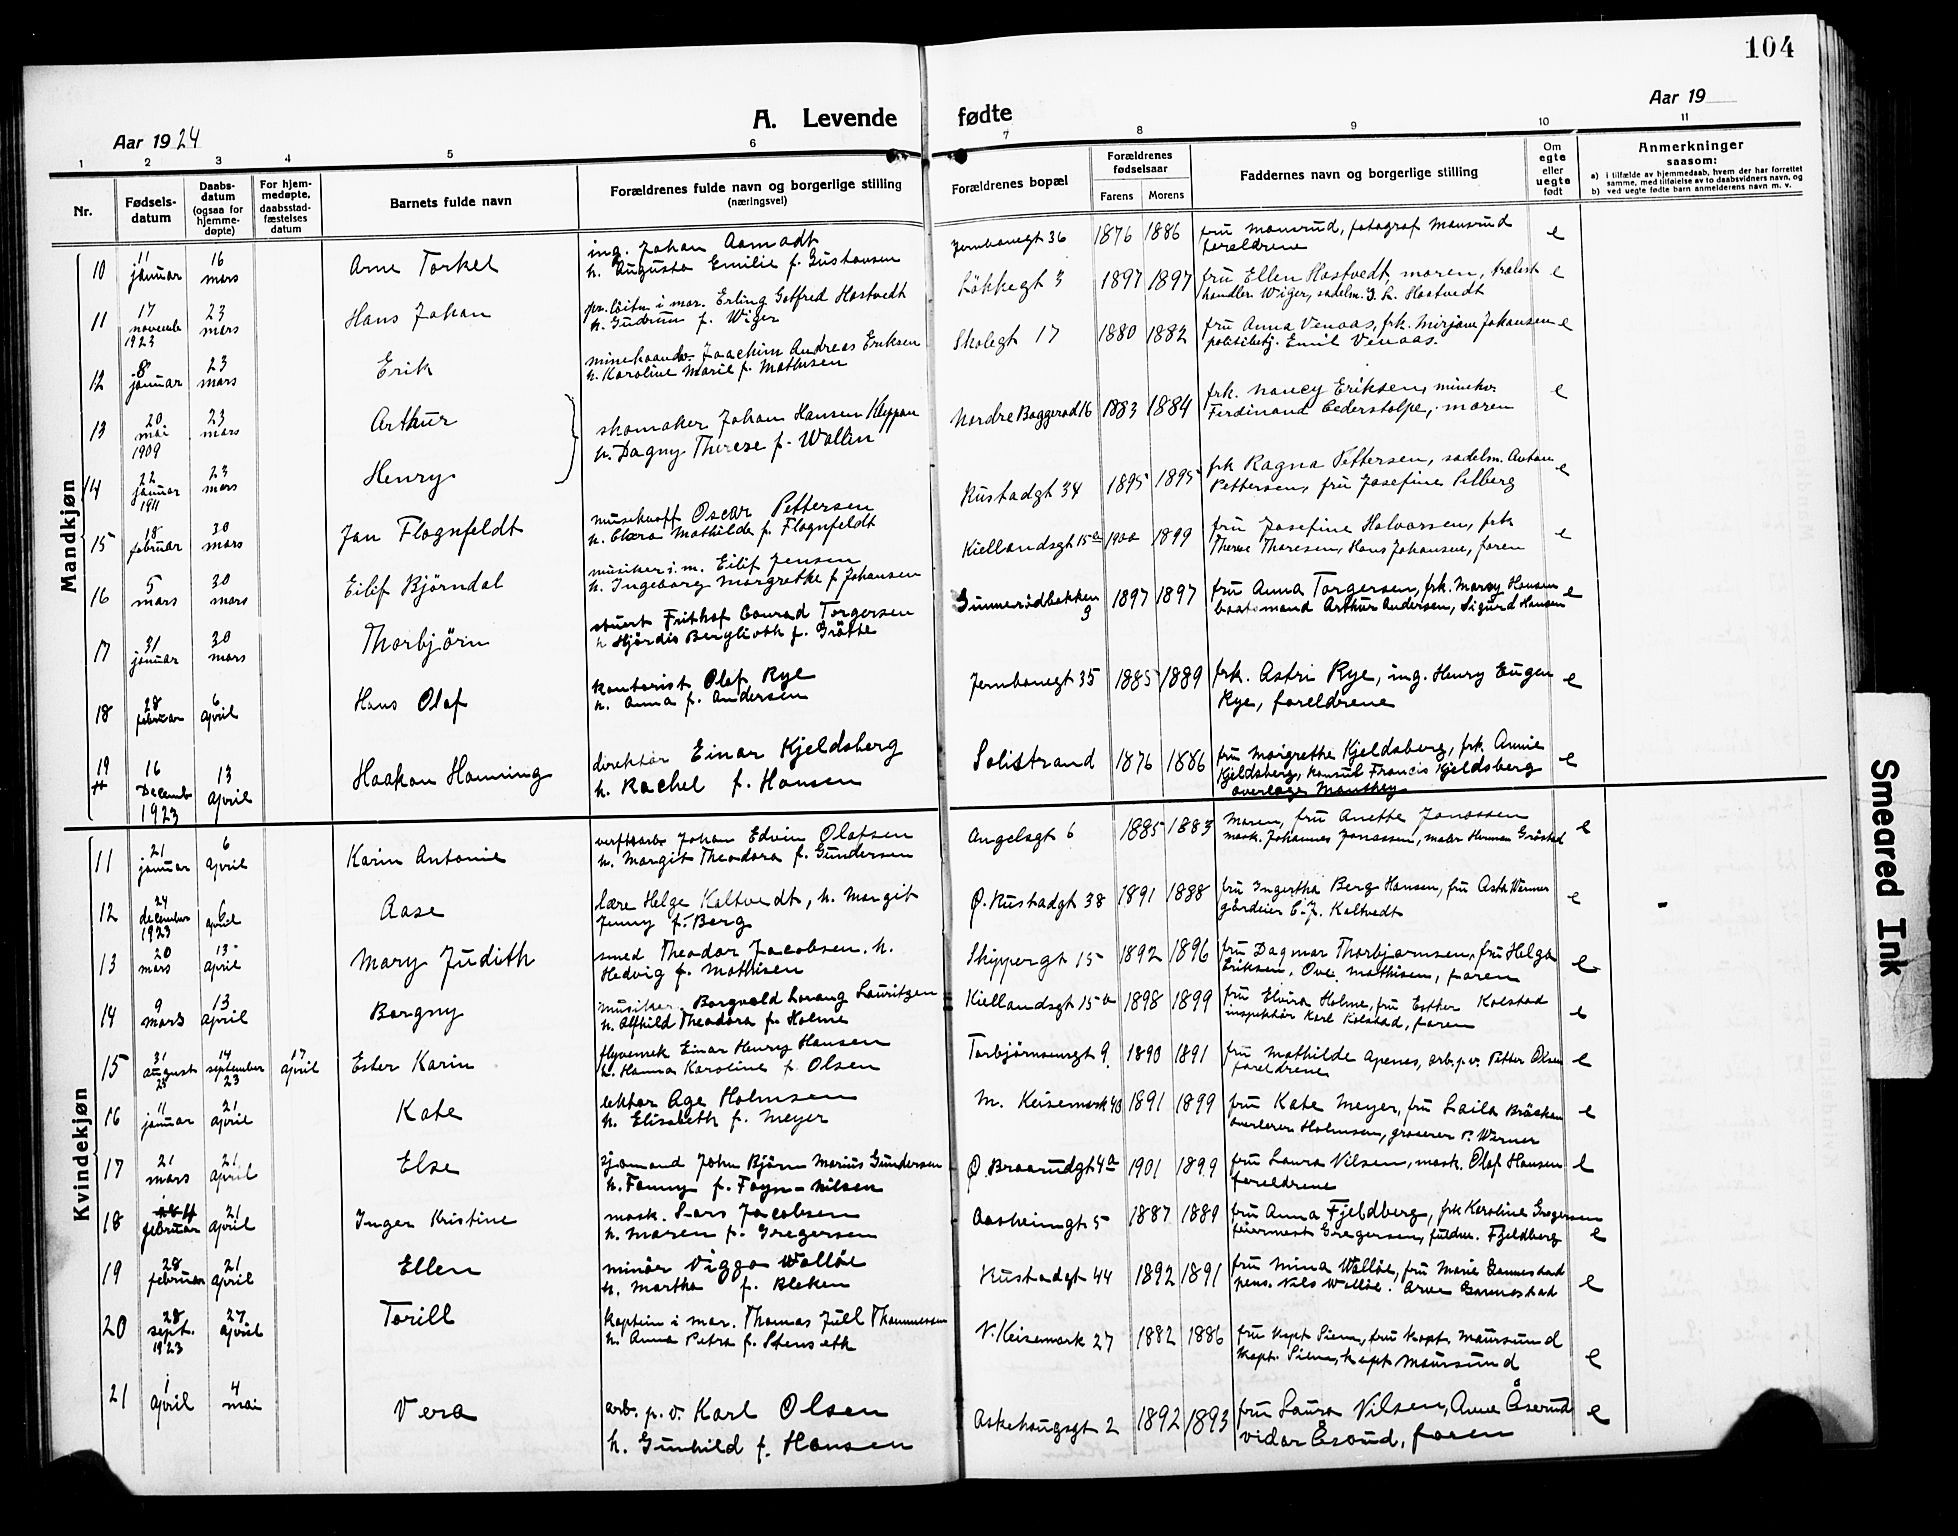 104
Aar 1924
A. Levende fødte
Aar 19
1 2 3 4 5 6 7 8 9 10 11
Nr.
Fødsels-
datum
Daabs-
datum
(ogsaa for
hjemme-
døpte)
For hjem-
medøpte,
daabsstad-
fæstelses
datum
Barnets fulde navn
Forældrenes fulde navn og borgerlige stilling
(næringsvei)
Forældrenes bopæl
Forældrenes
fødselsaar
Farens Morens
Faddernes navn og borgerlige stilling
Om
egte
eller
uegte
født
Anmerkninger
saasom:
a) i tilfælde av hjemmedaab, hvem der har forrettet
samme, med tilføielse av to daabsvidners navn, og
b) ved uegte fødte barn anmelderens navn m. v.
Mandkjøn
10 11 januar 16 mars Arne Torkel
ing. Johan Aamodt
h. Augusta Emilie f. Gustavsen
Jernbanegt 36 1876 1886
fru Mansrud, fotograf Mansrud
foreldrene e
11 17 novemb 1923 23 mars Hans Johan
pr. løitn i mar. Erling Gotfred Hostvedt
h. Gudrun f. Wiger
Løkkegt 3 1897 1897
fru Ellen Hostvedt, moren,
handler Wiger, sadelm. Hostvedt e
12 8 januar 23 mars Erik
minehaandv. Joachim Andreas Eriksen
h. Karoline Marie f. Mathisen
Skolegt 17 1880 1882
fru Anna Venaas, frk. Mirjam Johansen
politibetj. Emil Venaas. e
13 20 mai 1909 23 mars Arthur
skomaker Johan Hansen Kleppan
h. Dagny Therese f. Wallin
Nordre Baggerød 16 1883 1884
frk. Nancy Eriksen, minehv.
Ferdinand Cederstolpe, moren e
14 22 januar 1911 23 mars Henry
15 18 februar 30 mars Jan Flognfeldt
Oscar Pettersen
h. Clara Mathilde f. Flognfeldt
Rustadgt 34 1895 1895
frk Ragna Pettersen, sadelm. Anton
Pettersen, fru Josefine Pilberg e
16 5 mars 30 mars Eilif Bjørndal
musiker i. m. Eilif Jensen
h. Ingeborg Margrethe f Johansen
Kiellandsgt 15a 1900 1899
fru Josefine Halvorsen, frk
Therese Thoresen, Hans Johansen, faren e
17 31 januar 30 mars Thorbjørn
stuert Frithof Conrad Torgersen
h Hjørdis Berglioth f. Grøtte
Gunnerødbakken 9 1897 1897
fru Anna Torgersen, frk. Marey Hansen
baatsmand Arthur Andersen, Sigurd Hansen e
18 28 februar 6 april Hans Olaf
kontorist Olaf Rye
h. Anna f. Andersen
Jernbanegt 35 1885 1889
frk. Astri Rye, ing. Henry Eugen
Rye, foreldrene e
19 16 Decemb 1923 13 april Haakon Henning
direktør Einar Kjeldsberg
h. Rachel f. Hansen
Solistrand 1876 1886
fru Margrethe Kjeldsberg, frk. Annie
Kjeldsberg, konsul Francis Kjeldsberg
overlæge Manthey e
Kvindekjøn
11 21 januar 6 april Karin Antonie
verftsarb Johan Edvin Olafsen
h. Margit Theodora f. Gundersen
Angelsgt 6 1885 1883
Moren, fru Anette Jonassen
mask. Johannes Jonassen, maler Herman Grøstad e
12 24 december 1923 6 april Aase
lære Helge Kaltvedt, h. Margit
Jenny f. Berg
Ø. Rustadgt 38 1891 1888
fru Ingertha Berg Hansen, fru Asta Werner
gårdeier C. J. Kaltvedt e
13 20 mars 13 april Mary Judith
smed Theodor Jacobsen, h.
Hedvig f. Mathisen
Skippergt 15 1892 1896
fru Dagmar Thorbjørnsen, fru Helga
Eriksen, Ove Mathisen, faren e
14 9 mars 13 april Borgny
musiker Borgvald Lorang Lauritzen
h. Alfhild Theodora f. Holme
Kiellandsgt 15a 1898 1899
fru Elvira Holme, fru Esther Kolstad
inspektør Karl Kolstad, faren e
15 31 august 23 14 september 23 17 april Ester Karin
flyvemek Einar Henry Hansen
h. Hanna Karoline f Olsen
Torbjørnsensgt 9. 1890 1891
fru Mathilde Apenes, arb. p. v. Petter Olsen
foreldrene e
16 11 januar 21 april Kate
lektor Age Holmsen
h. Elisabeth f. Meyer
M. Keisemark 40 1891 1899
fru Kate Meyer, fru Laila Bråeken
overlærer Holmsen, grosserer P. Werner e
17 21 mars 21 april Else
sjømand John Bjørn Marius Gundersen
h. Fanny f. Foyn-Nilsen
Ø. Braarudgt 4a 1901 1899
fru Laura Nilsen, mask. Olaf Hansen
foreldrene e
18 februar 21 april Inger Kristine
mask. Lars Jacobsen
h. Maren f. Gregersen
Aasheimgt 5 1887 1889
fru Anna Fjeldberg, frk Karoline Gregersen
feiermest Gregersen, Fjeldberg e
19 28 februar 21 april Ellen
minør Viggo Walløe
h. Martha f. Bleken
Rustadgt 44 1892 1891
fru Mina Walløe, fru Marie Gannestad
pens. Nils Walløe. Arne Gannestad e
20 28 sept. 1923 27 april Torill
kaptein i mar. Thomas Juell Thommessen
h. Anna Petra f. Stenseth
N. Keisemark 27 1882 1886
fru kapt Siem, fru kapt. Maursund
kapt. Siem, kapt Maursund e
21 1 april 4 mai Vera
arb. p. v. Karl Olsen
h. Gunhild f. Hansen
Askehaugsgt 2 1892 1893
fru Laura Nilsen, Anne Åserud
Vidar Åserud, faren e
Smeared Ink